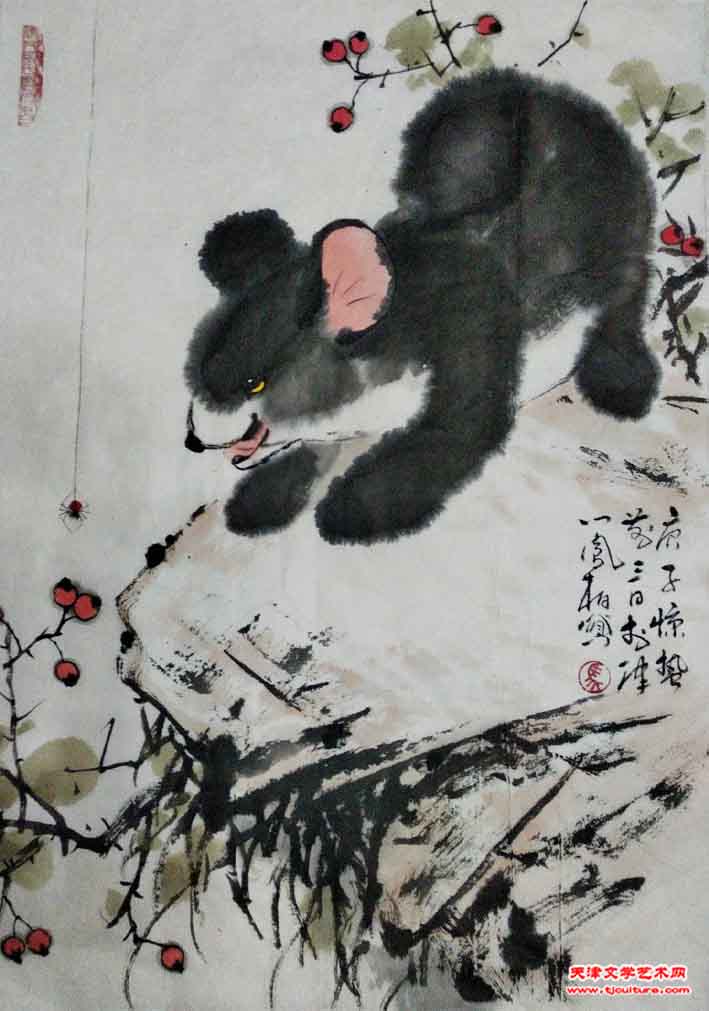 庚子惊蛰
三日於津
门凤柏寫
馬
天津文学艺术网
www.tjculture.com